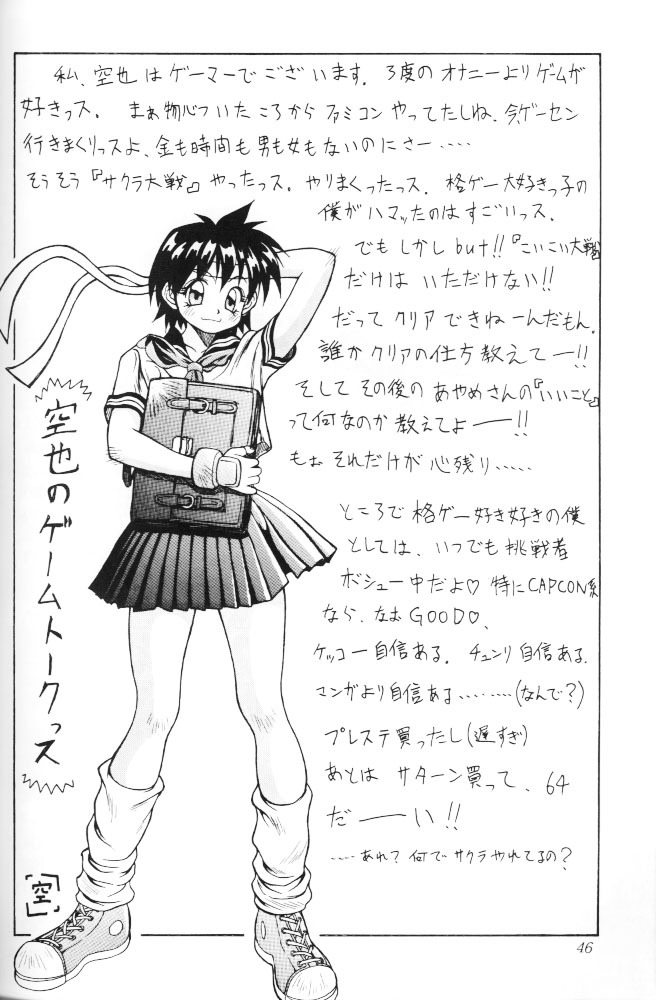 私、空也はゲーマーでございます。3度のオナニーよりゲームが
好きっス。まぁ物心ついたころからファミコンやってたしね、今、ゲーセン
行きまくりっスよ、金も時間も男も女もないのにさー‥‥‥
そうそう『サクラ大戦』やったっス。やりまくったっス。格ゲー大好きっ子の
僕がハマッたのはすごいっス。
でもしかしbut!!『こいこい大戦』
だけはいただけない!!
だってクリアできねーんだもん。
誰かクリアの仕方教えてー!!
そしてその後のあやめさんの『いいこと』
って何なのか教えてよー!!
もぉそれだけが心残り‥‥‥
ところで格ゲー好き好きの僕
としては、いつでも挑戦者
ボシュー中だよ♡特にCAPCON系
なら、なおGOOD♡、
ケッコー自信ある。チュンリ自信ある。
マンガより自信ある‥‥‥‥(なんで?)
プレステ買ったし(遅すぎ)
あとはサターン買って、64
だーい!!
‥‥あれ?何でサクラやれてるの?
空也のゲームトークっス
[空]
46